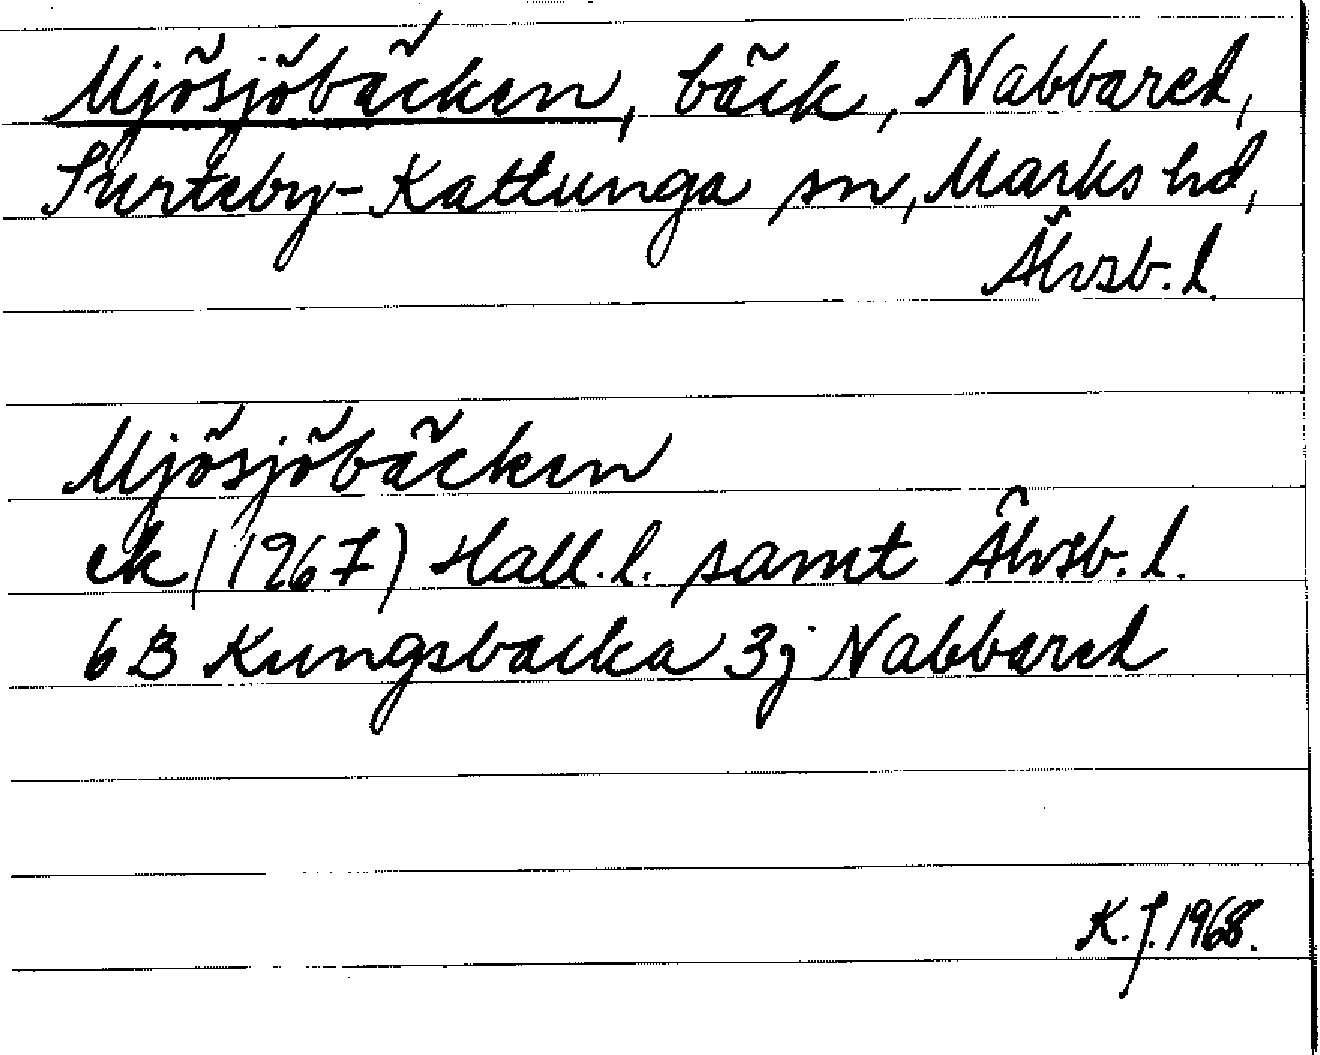 Mjösjöbäcken, bäck, Nabbared,
Surteby-Kattunga sn, Marks hd,
Älvsb. l.
Mjösjöbäcken
ek (1967) Hall. l. samt Älvsb. l.
6B Kungsbacka 3j Nabbared
K.J. 1968.